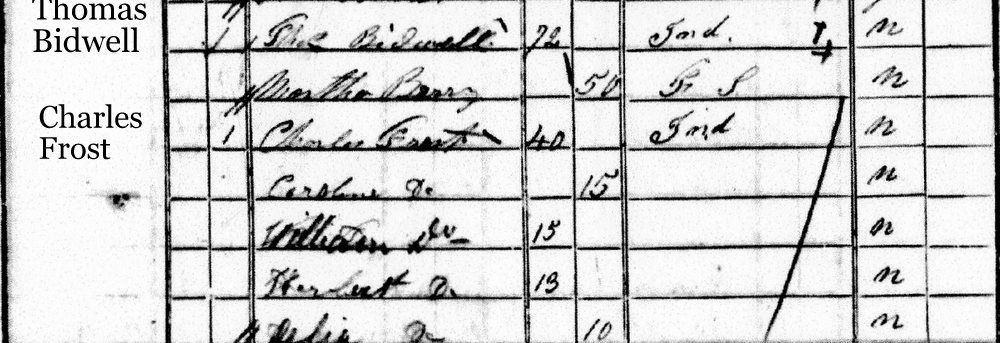 Thomas
Bidwell
1 Thos Bidwell 72 Ind. n
Martha Barry 50 F S n
Charles
Frost
1 Charles Frost 40 Ind n
Caroline Do 15 n
William Do 15 n
Herbert Do 13 n
Do 10 n